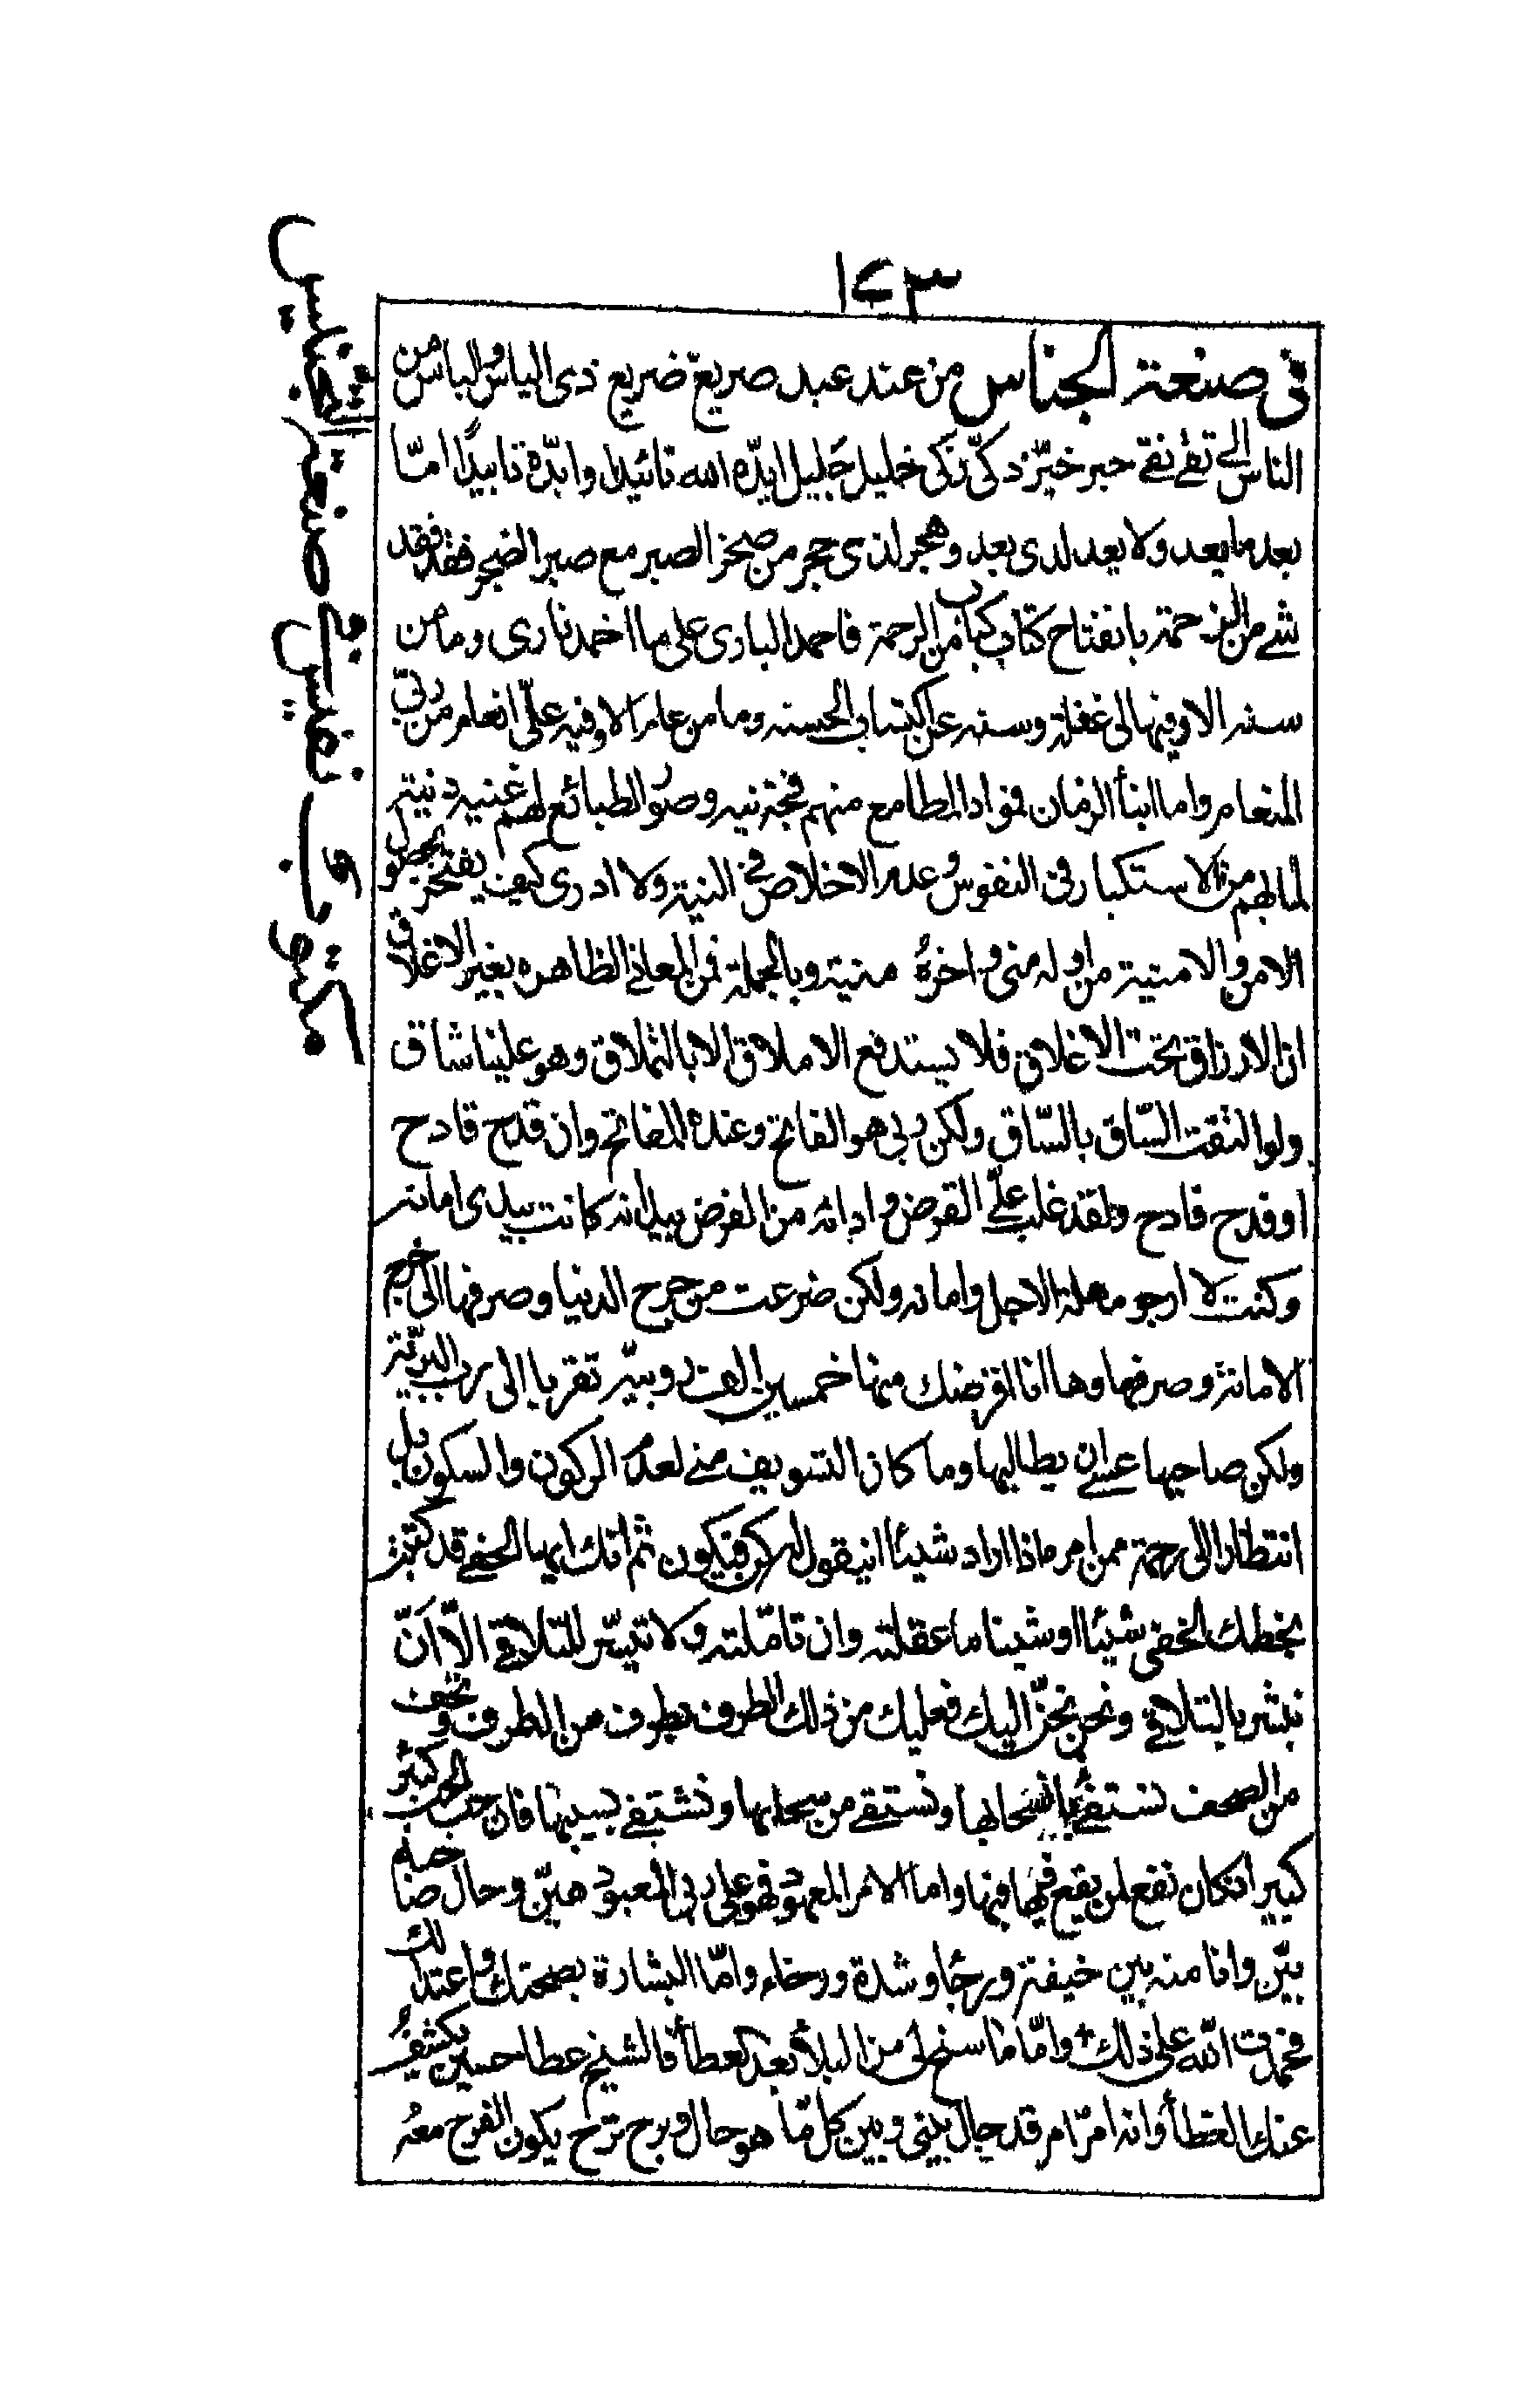 ١٢٣
فی صنعة الجناس من عند عبد صریع ضریع ذی الیاس والباس من
الناس الے تقے نقے حبر خیّر ذکیّ زکی خلیل جلیل ایدّه الله تائیدا وابدّه تابیدًا امّا
بعد ما یعد ولا یعد لدی بعد وهجر لذی حجر من صخر الصبر مع صبر الضجر فقد فقد
شے من الزحمة بانفتاح کتاب کباب من الرحمة فاحمد الباری علی ما اخمد ناری وما من
سنة الا وفیها لی غفلة وسنة عن اکتساب الحسنه وما من عام الا وفیه علیّ انعام من ربّی
المنعام واما ابنأ الزمان فمواد المطامع منهم فجة نیه وصور الطبائع لهم غنیه دنیّة
لمالهم من الاستکبار فی النفوس وعدم الاخلاص فی النیة ولا ادری کیف یفتخر بحصول
الامن والامنیة من اوله منی واخره منیة وبالجملة فمن المعاذ الظاهره بغیر الاغلاق
ان الارزاق تحت الاغلاق فلا یستدفع الاملاق الا بالتملاق وهو علینا شاق
ولو التفت السّاق بالسّاق ولکن ربی هو الفاتح وعنده المفاتح وان قدح قادح
او فدح فادح ولقد غلب علیّ القرض واداثه من الفرض بید انه کانت بیدی امانة
وکنت لا ارجو مهلة الاجل وامانه ولکن ضرعت من حرج الدنیا وصرفها الی خرج
الامانة وصرفها وها انا اقرضتك منها خمسین الف روبیّه تقربا الی رب البریّة
ولکن صاحبها عسے ان یطالبها وما کان التسویف منے لعدم الرکون والسکون بل
انتظارا الی رحمة من امر ماذا اراد شیئا ان یقول له کن فیکون ثم انك ایها الحفے قد کتبت
بخطك الخفی شیئا او شینا ما عقلته وان تامّلته ولا تیسّر للتلاقے الّا اَنّ
نبشر بالتلاقے ونحن نحنّ الیك فعلیك من ذلك الطرف بطرف من الطرف وتحف
من الصحف نستفے بانسحابها ونستقے من سحابها ونشتفے بسببها فان حب الحب کبیر
کبیر انکان نفع لمن یقع فیها فیها واما الامر المعهود فهو علی ربی المعبود هیّن وحال صاحبه
بیّن وانا منه بین خیفة ورجأ وشدة ورخاء وامّا البشارة بصحتك واعتدالك
فحمدت اللّه علی ذلك وامّا ما سنح لی من البلأ بعد العطأ فالشیخ عطا حسین یکشف
عنك الغطأ وانه امرّ امر قد حال بینی وبین کل مّا هو حال وبرح ترح یکون الفرح معه
مکتوب نفیس فے صنعة التجنیس